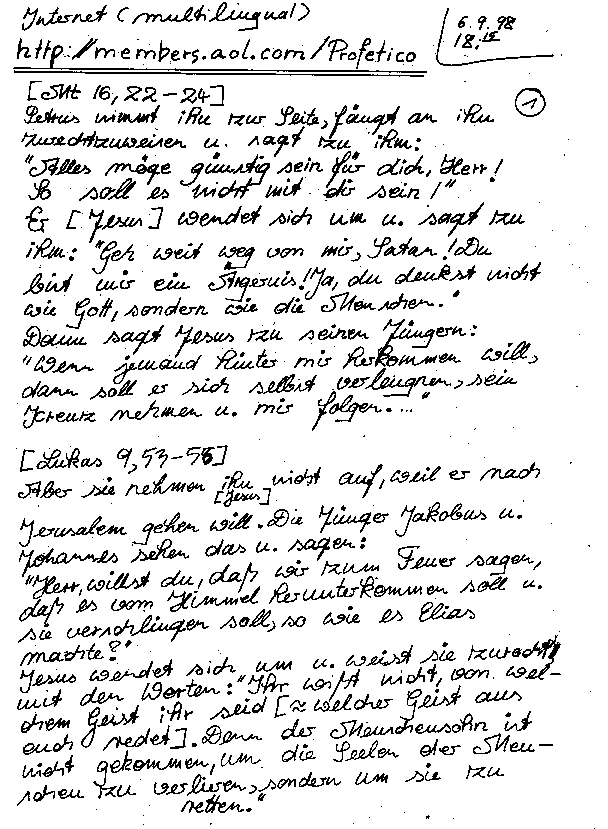 Internet (multilingual)
http://members.aol.com/Profetico
6.9.98
18:15
1
[Mt 16, 22-24]
Petrus nimmt ihn zur Seite, fängt an ihn
zurechtzuweisen u. sagt zu ihm:
"Alles möge günstig sein für dich, Herr!
So soll es nicht mit dir sein!"
Er [Jesus] wendet sich um u. sagt zu
ihm: "Geh weit weg von mir, Satan! Du
bist mir ein Ärgernis! Ja, du denkst nicht
wie Gott, sondern wie die Menschen."
Dann sagt Jesus zu seinen Jüngern:
"Wenn jemand hinter mir herkommen will,
dann soll er sich selbst verleugnen, sein
Kreuz nehmen u. mir folgen...."
[Lukas 9,53-56]
Aber sie nehmen ihn nicht auf, weil er nach
[Jesus]
Jerusalem gehen will. Die Jünger Jakobus u.
Johannes sehen das u. sagen:
"Herr, willst du, daß wir zum Feuer sagen,
daß es vom Himmel herunterkommen soll u.
sie verschlingen soll, so wie es Elias
machte?"
Jesus wendet sich um u. weist sie zurecht
mit den Worten: "Ihr wißt nicht, von wel-
chem Geist ihr seid [≈ welcher Geist aus
euch redet]. Denn der Menschensohn ist
nicht gekommen, um die Seelen der Men-
schen zu verlieren, sondern um sie zu
retten."